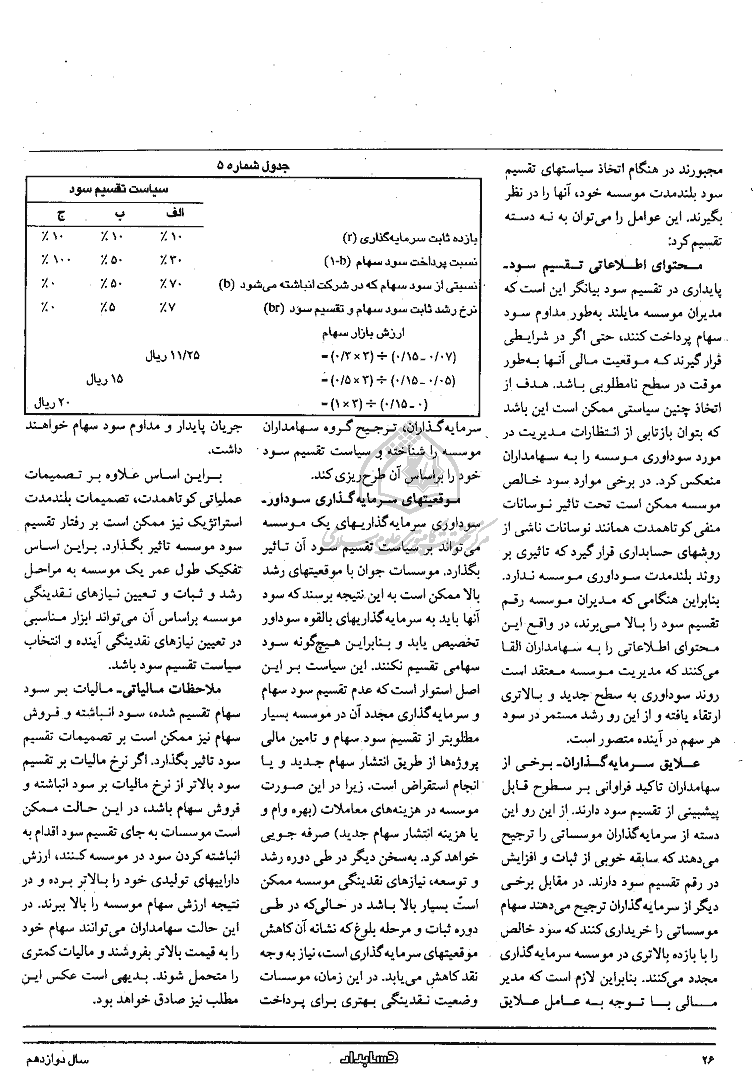 مجبورند در هنگام اتخاذ سیاستهای تقسیم
سود بلندمدت موسسه خود، آنها را در نظر
بگیرند. این عوامل را می‌توان به نه دسته
تقسیم کرد:
محتوای اطلاعاتی تقسیم سود-
پایداری در تقسیم سود بیانگر این است که
مدیران موسسه مایلند به‌طور مداوم سود
سهام پرداخت کنند، حتی اگر در شرایطی
قرار گیرند که موقعیت مالی آنها به‌طور
موقت در سطح نامطلوبی باشد. هدف از
اتخاذ چنین سیاستی ممکن است این باشد
که بتوان بازتابی از انتظارات مدیریت در
مورد سودآوری موسسه را به سهامداران
منعکس کرد. در برخی موارد سود خالص
موسسه ممکن است تحت تاثیر نوسانات
منفی کوتاهمدت همانند نوسانات ناشی از
روشهای حسابداری قرار گیرد که تاثیری بر
روند بلندمدت سودآوری موسسه ندارد.
بنابراین هنگامی که مدیران موسسه رقم
تقسیم سود را بالا می‌برند، در واقع این
محتوای اطلاعاتی را به سهامداران القا
می‌کنند که مدیریت موسسه معتقد است
روند سودآوری به سطح جدید و بالاتری
ارتقاء یافته و از این رو رشد مستمر در سود
هر سهم در آینده متصور است.
علایق سرمایه‌گذاران- برخی از
سهامداران تاکید فراوانی بر سطوح قابل
پیشبینی از تقسیم سود دارند. از این رو این
دسته از سرمایه‌گذاران موسساتی را ترجیح
می‌دهند که سابقه خوبی از ثبات و افزایش
در رقم تقسیم سود دارند. در مقابل برخی
دیگر از سرمایه‌گذاران ترجیح می‌دهند سهام
موسساتی را خریداری کنند که سود خالص
را با بازده بالاتری در موسسه سرمایه‌گذاری
مجدد می‌کنند. بنابراین لازم است که مدیر
مالی با توجه به عامل علایق
جدول شماره ۵
سیاست تقسیم سود
الف ب ج
بازده ثابت سرمایه‌گذاری (r) ۱۰٪ ۱۰٪ ۱۰٪
نسبت پرداخت سود سهام (1-b) ۳۰٪ ۵۰٪ ۱۰۰٪
نسبتی از سود سهام که در شرکت انباشته می‌شود (b) ۷۰٪ ۵۰٪ ۰٪
نرخ رشد ثابت سود سهام و تقسیم سود (br) ۷٪ ۵٪ ۰٪
ارزش بازار سهام
= (۰/۳ × ۳) ÷ (۰/۱۵ - ۰/۰۷) ۱۱/۲۵ ریال
= (۰/۵ × ۳) ÷ (۰/۱۵ - ۰/۰۵) ۱۵ ریال
= (۱ × ۳) ÷ (۰/۱۵ - ۰) ۲۰ ریال
سرمایه‌گذاران، ترجیح گروه سهامداران
موسسه را شناخته و سیاست تقسیم سود
خود را براساس آن طرح‌ریزی کند.
موقعیتهای سرمایه‌گذاری سودآور-
سودآوری سرمایه‌گذاریهای یک موسسه
می‌تواند بر سیاست تقسیم سود آن تاثیر
بگذارد. موسسات جوان با موقعیتهای رشد
بالا ممکن است به این نتیجه برسند که سود
آنها باید به سرمایه‌گذاریهای بالقوه سودآور
تخصیص یابد و بنابراین هیچ‌گونه سود
سهامی تقسیم نکنند. این سیاست بر این
اصل استوار است که عدم تقسیم سود سهام
و سرمایه‌گذاری مجدد آن در موسسه بسیار
مطلوبتر از تقسیم سود سهام و تامین مالی
پروژه‌ها از طریق انتشار سهام جدید و یا
انجام استقراض است. زیرا در این صورت
موسسه در هزینه‌های معاملات (بهره وام و
یا هزینه انتشار سهام جدید) صرفه جویی
خواهد کرد. به‌سخن دیگر در طی دوره رشد
و توسعه، نیازهای نقدینگی موسسه ممکن
است بسیار بالا باشد در حالی‌که در طی
دوره ثبات و مرحله بلوغ که نشانه آن کاهش
موقعیتهای سرمایه‌گذاری است، نیاز به وجه
نقد کاهش می‌یابد. در این زمان، موسسات
وضعیت نقدینگی بهتری برای پرداخت
جریان پایدار و مداوم سود سهام خواهند
داشت.
براین اساس علاوه بر تصمیمات
عملیاتی کوتاهمدت، تصمیمات بلندمدت
استراتژیک نیز ممکن است بر رفتار تقسیم
سود موسسه تاثیر بگذارد. براین اساس
تفکیک طول عمر یک موسسه به مراحل
رشد و ثبات و تعیین نیازهای نقدینگی
موسسه براساس آن می‌تواند ابزار مناسبی
در تعیین نیازهای نقدینگی آینده و انتخاب
سیاست تقسیم سود باشد.
ملاحظات مالیاتی- مالیات بر سود
سهام تقسیم شده، سود انباشته و فروش
سهام نیز ممکن است بر تصمیمات تقسیم
سود تاثیر بگذارد. اگر نرخ مالیات بر تقسیم
سود بالاتر از نرخ مالیات بر سود انباشته و
فروش سهام باشد، در این حالت ممکن
است موسسات به جای تقسیم سود اقدام به
انباشته کردن سود در موسسه کنند، ارزش
داراییهای تولیدی خود را بالاتر برده و در
نتیجه ارزش سهام موسسه را بالا ببرند. در
این حالت سهامداران می‌توانند سهام خود
را به قیمت بالاتر بفروشند و مالیات کمتری
را متحمل شوند. بدیهی است عکس این
مطلب نیز صادق خواهد بود.
۲۶
حسابدار
سال دوازدهم